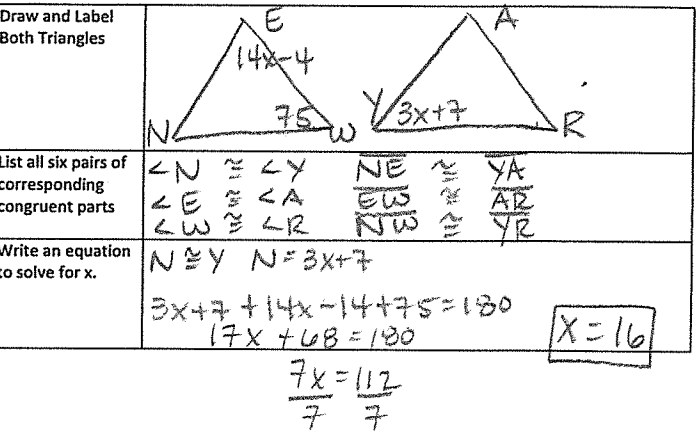 Draw and Label
Both Triangles
E
14x-4
75
N
W
A
Y
3x+7
R
List all six pairs of
corresponding
congruent parts
<N ≅ <Y NE ≅ YA
<E ≅ <A EW ≅ AR
<W ≅ <R NW ≅ YR
Write an equation
to solve for x.
N≅Y N=3x+7
3x+7+14x-14+75=180
17x+68=180
x=16
7x=112
7 7